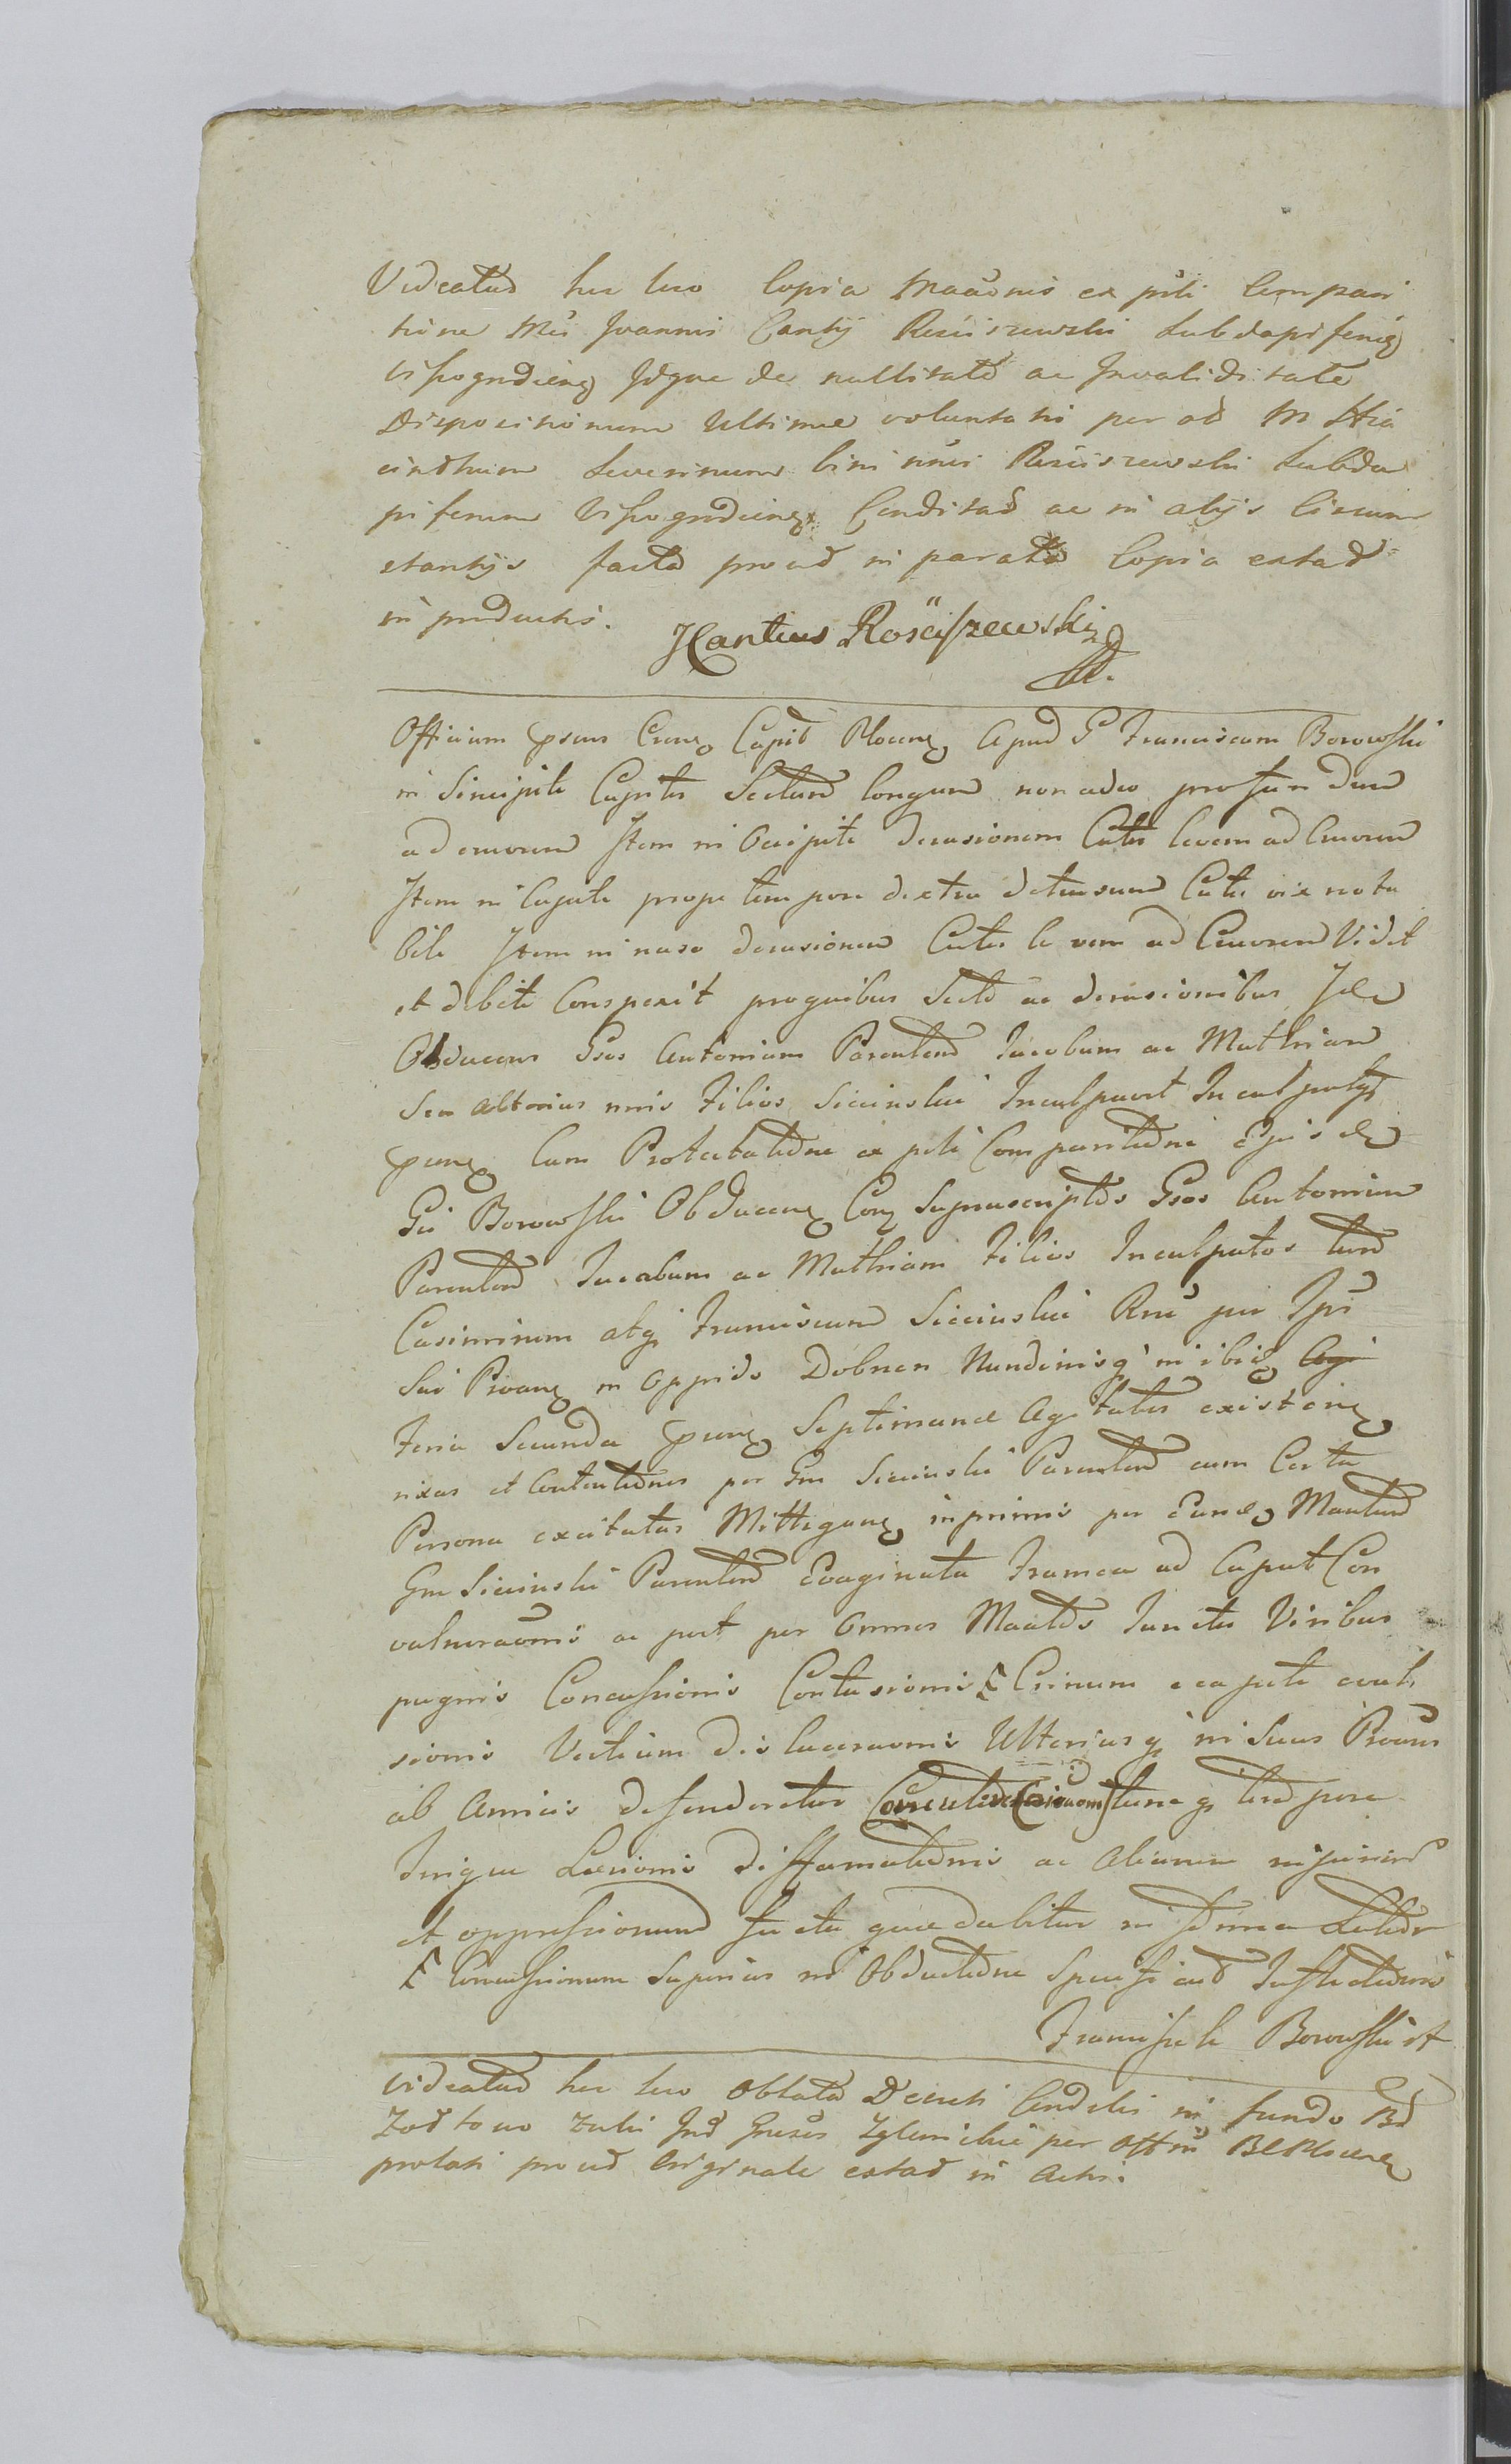 Videatur hic loco Copia Maãonis ex psti Compari
tione Mci Joannis Cantij Rosciszewski Subdapiferi
Wyszogrodien Idque de nullitate ac Invaliditate
Dispositionum Ultimae voluntatis per ad M Hia
cinthum Severinum Rosciszewski Subda
piferum Wyszogrodien Condita ac in alijs Circum
stantijs facta prout in parata Copia extat
in productis.
JCantius Rosciszewski
Officium psens Capit Plocen Apud G Franciscum Borowski
in Sincipite Capitis Sectum longum non adeo profundum
ad cruorem Item in Occipite derasionem Cutis levem ad Cruorem
Item in Capite prope tempora dextra detursum Cutis vix nota
bile Item in naso derasionem Cutis levem ad Cruorem Vidit
et debite Conspexit pro quibus Secto ac derasionibus Idem
Obducens Gsos Antonium Parentem Jacobum ac Mathiam
Seu alterius nnis Filios Siecinski Inculpavit Inculpatq
psens Cum Protestatione ex psti Comparitione Ejusd
Gsi Borowski Obducen Con Suprascriptos Gsos Antonium
Parentem Jacobum ac Mathiam Filios Inculpatos tum
Casimirum atq Franciscum Siecinski per Ipsi
Suo in Oppido Dobrzen Nundinisq in ibid
Feria Secunda psen Septimanae Agitatis existen
rixas et Contentiones per Gm Siecinski Parentem cum Certa
Persona excitatas Mittigan inprimis per Eund Maatum
Gm Siecinski Parentem Evaginata Framea ad Caput Con
vulneraonis ac post per Omnes Maatos Junctis Viribus
pugnis Concussionis Contusionis & Crinum e capite evul
sionis Vestium dislaceraonis Ulteriusq ni Suus
ab Amicis defenderetur tuncq tempore
Laesionis Diffamationis ac Aliarum injuriarum
et oppressionum facta quae dabitur in
& Concussionum Superius in Obductione Specificat
Franciszek Borowski
Videatur hic loco Oblata Decreti Condes in fundo
per Offm Plocen
prolati prout Originale extat in Actis.